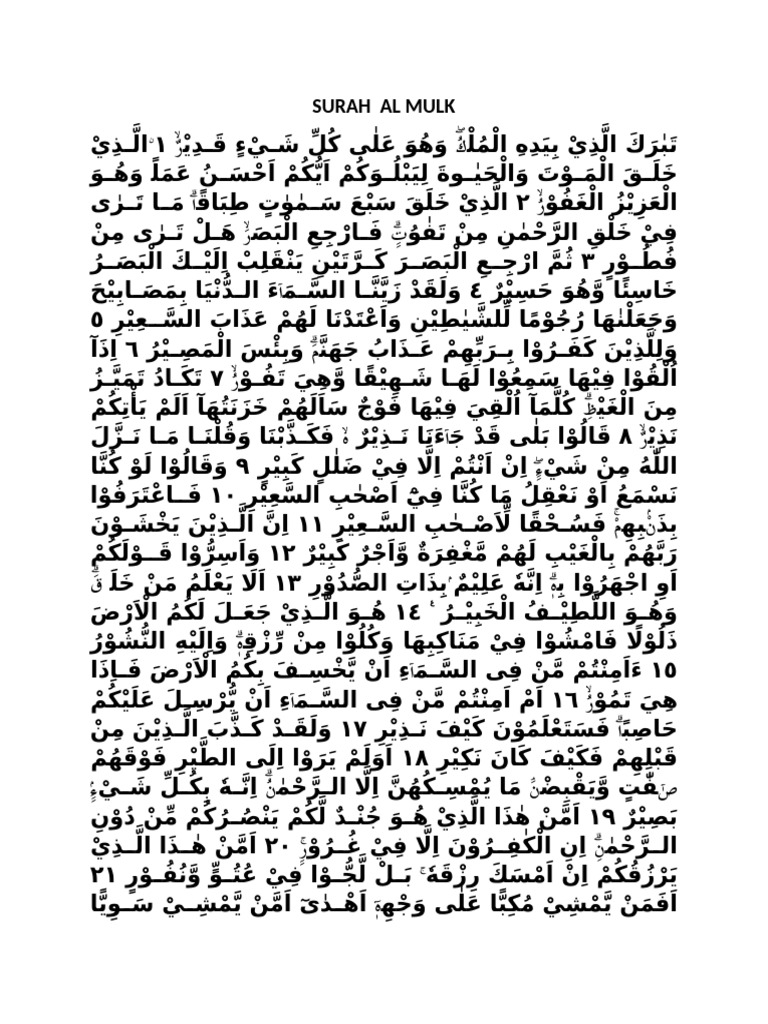 SURAH AL MULK
تَبٰرَكَ الَّذِيْ بِيَدِهِ الْمُلْكُۖ وَهُوَ عَلٰى كُلِّ شَيْءٍ قَدِيْرٌۙ ١ ۨالَّذِيْ
خَلَقَ الْمَوْتَ وَالْحَيٰوةَ لِيَبْلُوَكُمْ اَيُّكُمْ اَحْسَنُ عَمَلًا وَهُوَ
الْعَزِيْزُ الْغَفُوْرُۙ ٢ الَّذِيْ خَلَقَ سَبْعَ سَمٰوٰتٍ طِبَاقًاۗ مَا تَرٰى
فِيْ خَلْقِ الرَّحْمٰنِ مِنْ تَفٰوُتٍۗ فَارْجِعِ الْبَصَرَۙ هَلْ تَرٰى مِنْ
فُطُوْرٍ ٣ ثُمَّ ارْجِعِ الْبَصَرَ كَرَّتَيْنِ يَنْقَلِبْ اِلَيْكَ الْبَصَرُ
خَاسِئًا وَّهُوَ حَسِيْرٌ ٤ وَلَقَدْ زَيَّنَّا السَّمَاۤءَ الدُّنْيَا بِمَصَابِيْحَ
وَجَعَلْنٰهَا رُجُوْمًا لِّلشَّيٰطِيْنِ وَاَعْتَدْنَا لَهُمْ عَذَابَ السَّعِيْرِ ٥
وَلِلَّذِيْنَ كَفَرُوْا بِرَبِّهِمْ عَذَابُ جَهَنَّمَۗ وَبِئْسَ الْمَصِيْرُ ٦ اِذَآ
اُلْقُوْا فِيْهَا سَمِعُوْا لَهَا شَهِيْقًا وَّهِيَ تَفُوْرُۙ ٧ تَكَادُ تَمَيَّزُ
مِنَ الْغَيْظِۗ كُلَّمَآ اُلْقِيَ فِيْهَا فَوْجٌ سَاَلَهُمْ خَزَنَتُهَآ اَلَمْ يَأْتِكُمْ
نَذِيْرٌۙ ٨ قَالُوْا بَلٰى قَدْ جَاۤءَنَا نَذِيْرٌ ەۙ فَكَذَّبْنَا وَقُلْنَا مَا نَزَّلَ
اللّٰهُ مِنْ شَيْءٍۖ اِنْ اَنْتُمْ اِلَّا فِيْ ضَلٰلٍ كَبِيْرٍ ٩ وَقَالُوْا لَوْ كُنَّا
نَسْمَعُ اَوْ نَعْقِلُ مَا كُنَّا فِيْٓ اَصْحٰبِ السَّعِيْرِ ١٠ فَاعْتَرَفُوْا
بِذَنْۢبِهِمْۚ فَسُحْقًا لِّاَصْحٰبِ السَّعِيْرِ ١١ اِنَّ الَّذِيْنَ يَخْشَوْنَ
رَبَّهُمْ بِالْغَيْبِ لَهُمْ مَّغْفِرَةٌ وَّاَجْرٌ كَبِيْرٌ ١٢ وَاَسِرُّوْا قَوْلَكُمْ
اَوِ اجْهَرُوْا بِهٖۗ اِنَّهٗ عَلِيْمٌ ۢبِذَاتِ الصُّدُوْرِ ١٣ اَلَا يَعْلَمُ مَنْ خَلَقَۗ
وَهُوَ اللَّطِيْفُ الْخَبِيْرُ ࣖ ١٤ هُوَ الَّذِيْ جَعَلَ لَكُمُ الْاَرْضَ
ذَلُوْلًا فَامْشُوْا فِيْ مَنَاكِبِهَا وَكُلُوْا مِنْ رِّزْقِهٖۗ وَاِلَيْهِ النُّشُوْرُ
١٥ ءَاَمِنْتُمْ مَّنْ فِى السَّمَاۤءِ اَنْ يَّخْسِفَ بِكُمُ الْاَرْضَ فَاِذَا
هِيَ تَمُوْرُۙ ١٦ اَمْ اَمِنْتُمْ مَّنْ فِى السَّمَاۤءِ اَنْ يُّرْسِلَ عَلَيْكُمْ
حَاصِبًاۗ فَسَتَعْلَمُوْنَ كَيْفَ نَذِيْرِ ١٧ وَلَقَدْ كَذَّبَ الَّذِيْنَ مِنْ
قَبْلِهِمْ فَكَيْفَ كَانَ نَكِيْرِ ١٨ اَوَلَمْ يَرَوْا اِلَى الطَّيْرِ فَوْقَهُمْ
صٰۤفّٰتٍ وَّيَقْبِضْنَۘ مَا يُمْسِكُهُنَّ اِلَّا الرَّحْمٰنُۗ اِنَّهٗ بِكُلِّ شَيْءٍۢ
بَصِيْرٌ ١٩ اَمَّنْ هٰذَا الَّذِيْ هُوَ جُنْدٌ لَّكُمْ يَنْصُرُكُمْ مِّنْ دُوْنِ
الرَّحْمٰنِۗ اِنِ الْكٰفِرُوْنَ اِلَّا فِيْ غُرُوْرٍۚ ٢٠ اَمَّنْ هٰذَا الَّذِيْ
يَرْزُقُكُمْ اِنْ اَمْسَكَ رِزْقَهٗ ۚ بَلْ لَّجُّوْا فِيْ عُتُوٍّ وَّنُفُوْرٍ ٢١
اَفَمَنْ يَّمْشِيْ مُكِبًّا عَلٰى وَجْهِهٖٓ اَهْدٰىٓ اَمَّنْ يَّمْشِيْ سَوِيًّا